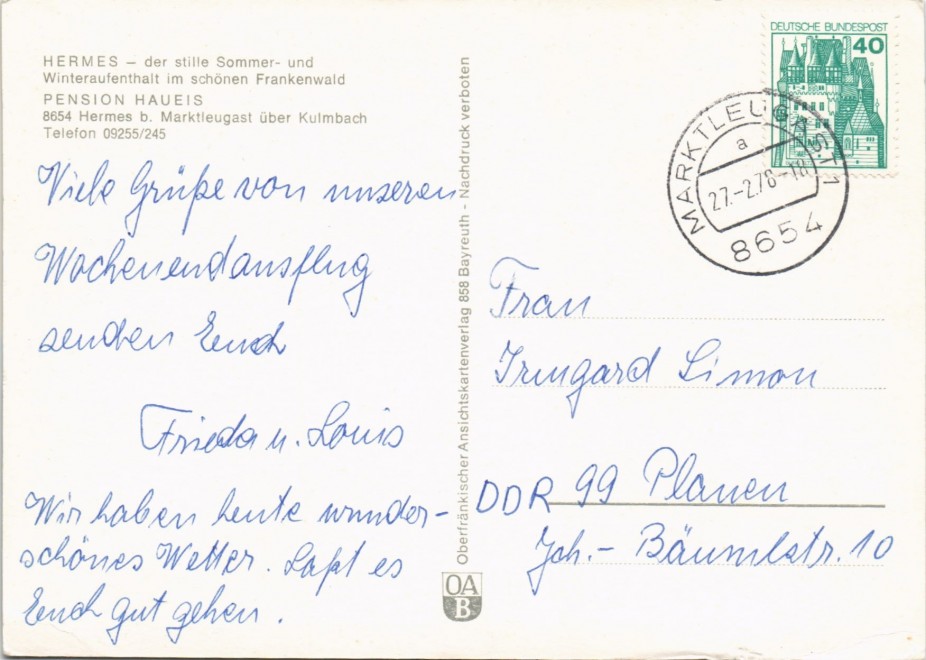 HERMES – der stille Sommer- und
Winteraufenthalt im schönen Frankenwald
PENSION HAUEIS
8654 Hermes b. Marktleugast über Kulmbach
Telefon 09255/245
Viele Grüße von unseren
Wochenendausflug
senden Euch
Frieda u. Louis
Wir haben heute wunder-
schönes Wetter. Laßt es
Euch gut gehen.
Oberfränkischer Ansichtskartenverlag 858 Bayreuth - Nachdruck verboten
OA
B
DEUTSCHE BUNDESPOST
40
MARKTLEUGAST 1
a
27.-2.78-18
8654
Frau
Irmgard Simon
DDR 99 Plauen
Joh.- Bäumlstr. 10